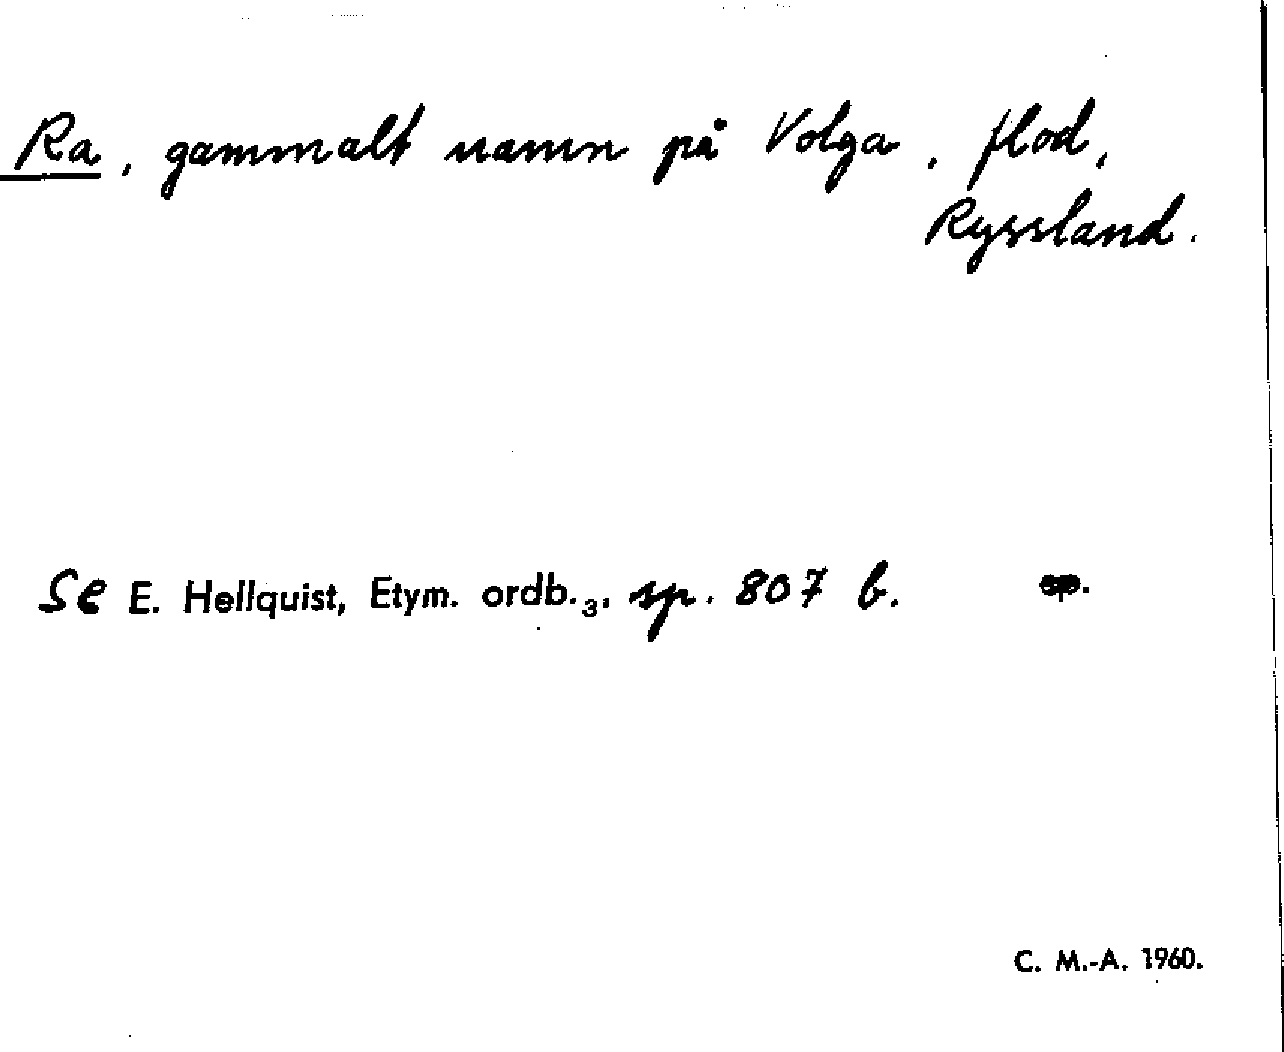 Ra, gammalt namn på Volga, flod,
Ryssland.
Se E. Hellquist, Etym. ordb.₃, sp. 807 b.
C. M.-A. 1960.